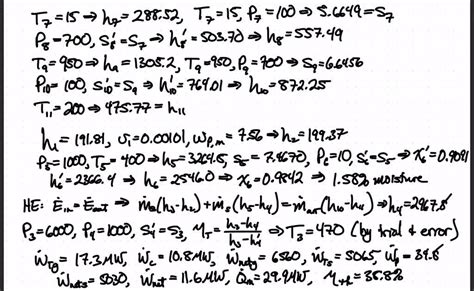 T₇=15 ⇒ h₇=288.52, T₇=15, P₇=100 ⇒ 5.6649=S₇
P₈=700, S₈'=S₇ ⇒ h₈'=503.70 ⇒ h₈=557.49
T₉=950 ⇒ h₉=1305.2, T₉=950, P₉=700 ⇒ S₉=6.6456
P₁₀=100, S₁₀'=S₉ ⇒ h₁₀'=764.01 ⇒ h₁₀=872.25
T₁₁=200 ⇒ 475.77=h₁₁
h₁=191.81, v₁=0.00101, wₚ,ₘ=7.56 ⇒ h₂=199.37
P₅=1000, T₅=400 ⇒ h₅=3264.5, s₅=7.4670, P₆=10, s₆'=s₅ ⇒ x₆'=0.9091
h₆'=2366.4 ⇒ h₆=2546.0 ⇒ x₆=0.9842 ⇒ 1.58% moisture
HE: Ėᵢₙ=Ėₒᵤₜ ⇒ ṁₐ(h₃-h₂)+ṁₛ(h₅-h₄)=ṁₐᵣ(h₁₀-h₁₁) ⇒ h₄=2967.8
P₃=6000, P₄=1000, S₄'=S₃, η_T=(h₃-h₄)/(h₃-h₄') ⇒ T₃=470 (by trial & error)
Ẇ_Tg=17.3MW, Ẇ_c=10.8MW, Ẇ_netg=6560, Ẇ_Ts=5065, Ẇ_p=34.8
Ẇ_nets=5030, Ẇ_net=11.6MW, Q̇ᵢₙ=29.9MW, η_th=38.8%